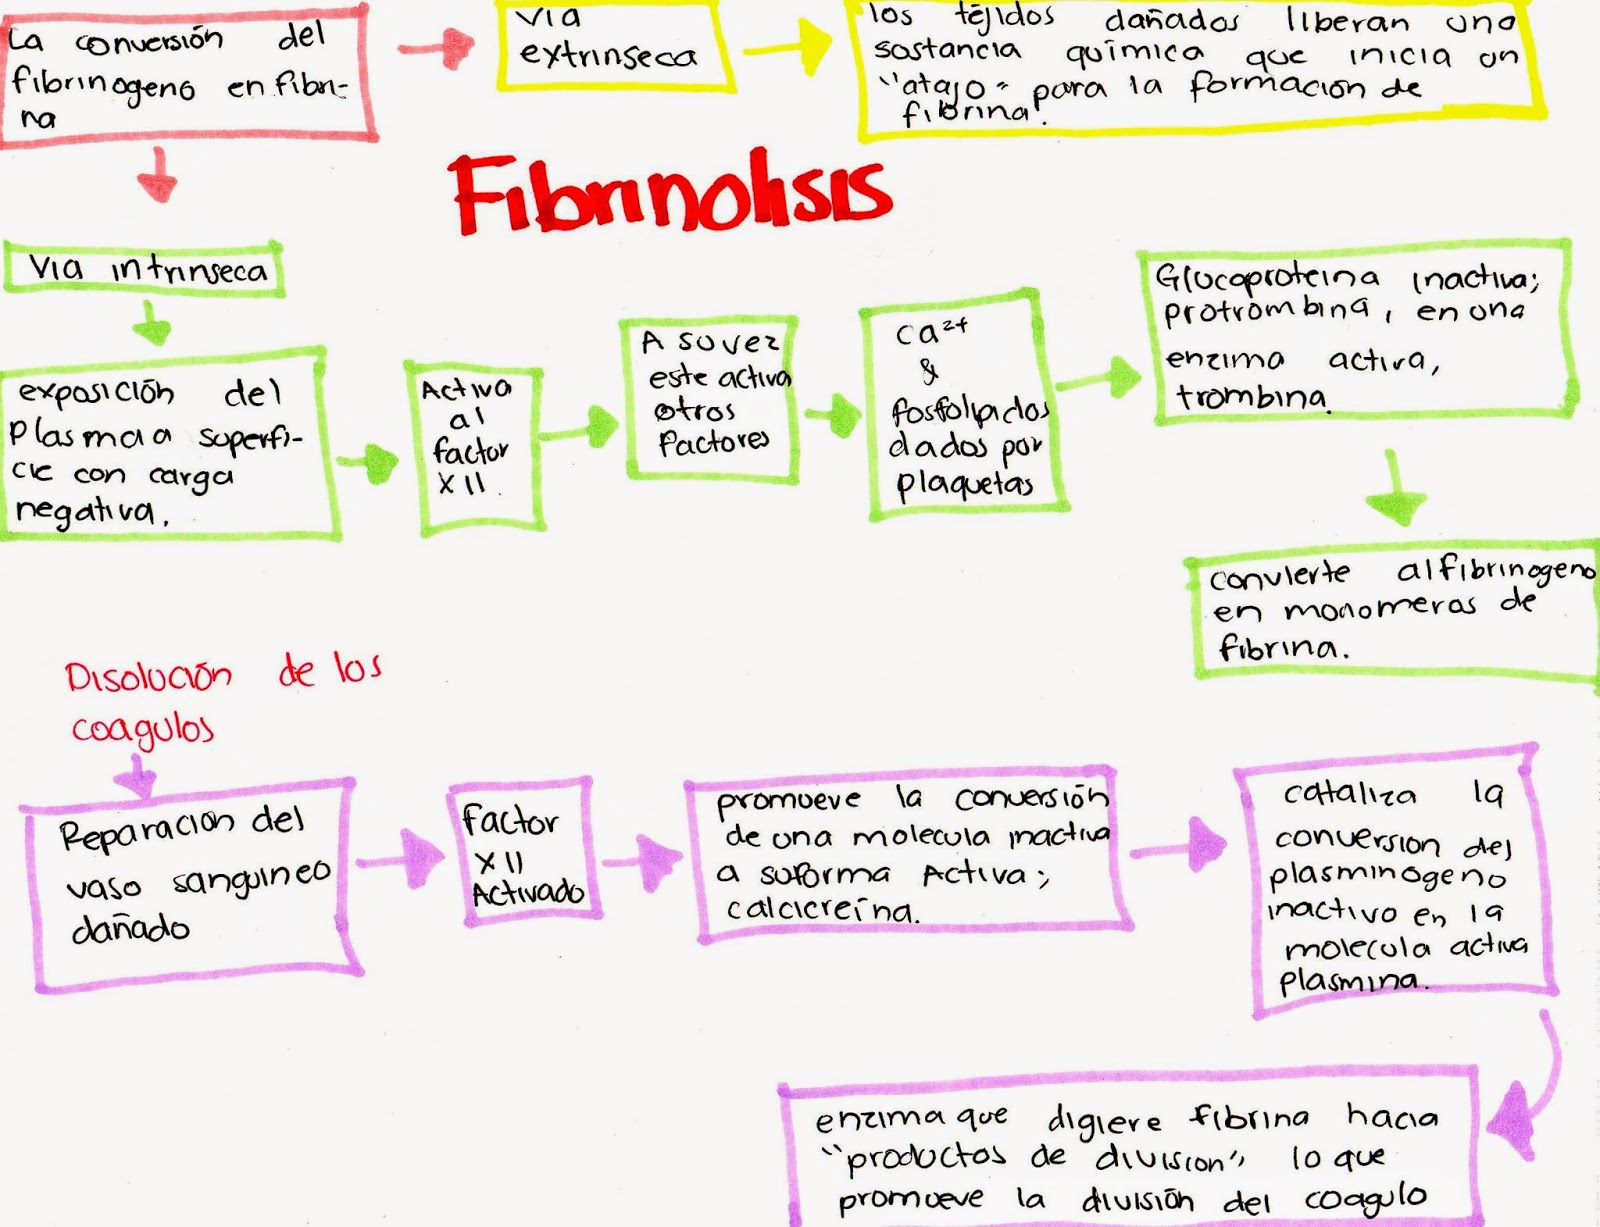 La conversión del
fibrinogeno en fibri-
na
via
extrinseca
los téjidos dañados liberan una
sustancia química que inicia un
"atajo" para la formación de
fibrina.
Fibrinolisis
Via intrinseca
exposición del
plasma a superfi-
cie con carga
negativa.
Activa
al
factor
XII.
A su vez
este activa
otros
factores
Ca²⁺
&
fosfolipidos
dados por
plaquetas
Glucoproteina inactiva;
protrombina, en una
enzima activa,
trombina.
convierte al fibrinogeno
en monomeros de
fibrina.
Disolución de los
coagulos
Reparación del
vaso sanguineo
dañado
factor
XII
Activado
promueve la conversión
de una molecula inactiva
a su forma Activa;
calcicreína.
cataliza la
conversion del
plasminogeno
inactivo en la
molecula activa
plasmina.
enzima que digiere fibrina hacia
"productos de division", lo que
promueve la división del coagulo